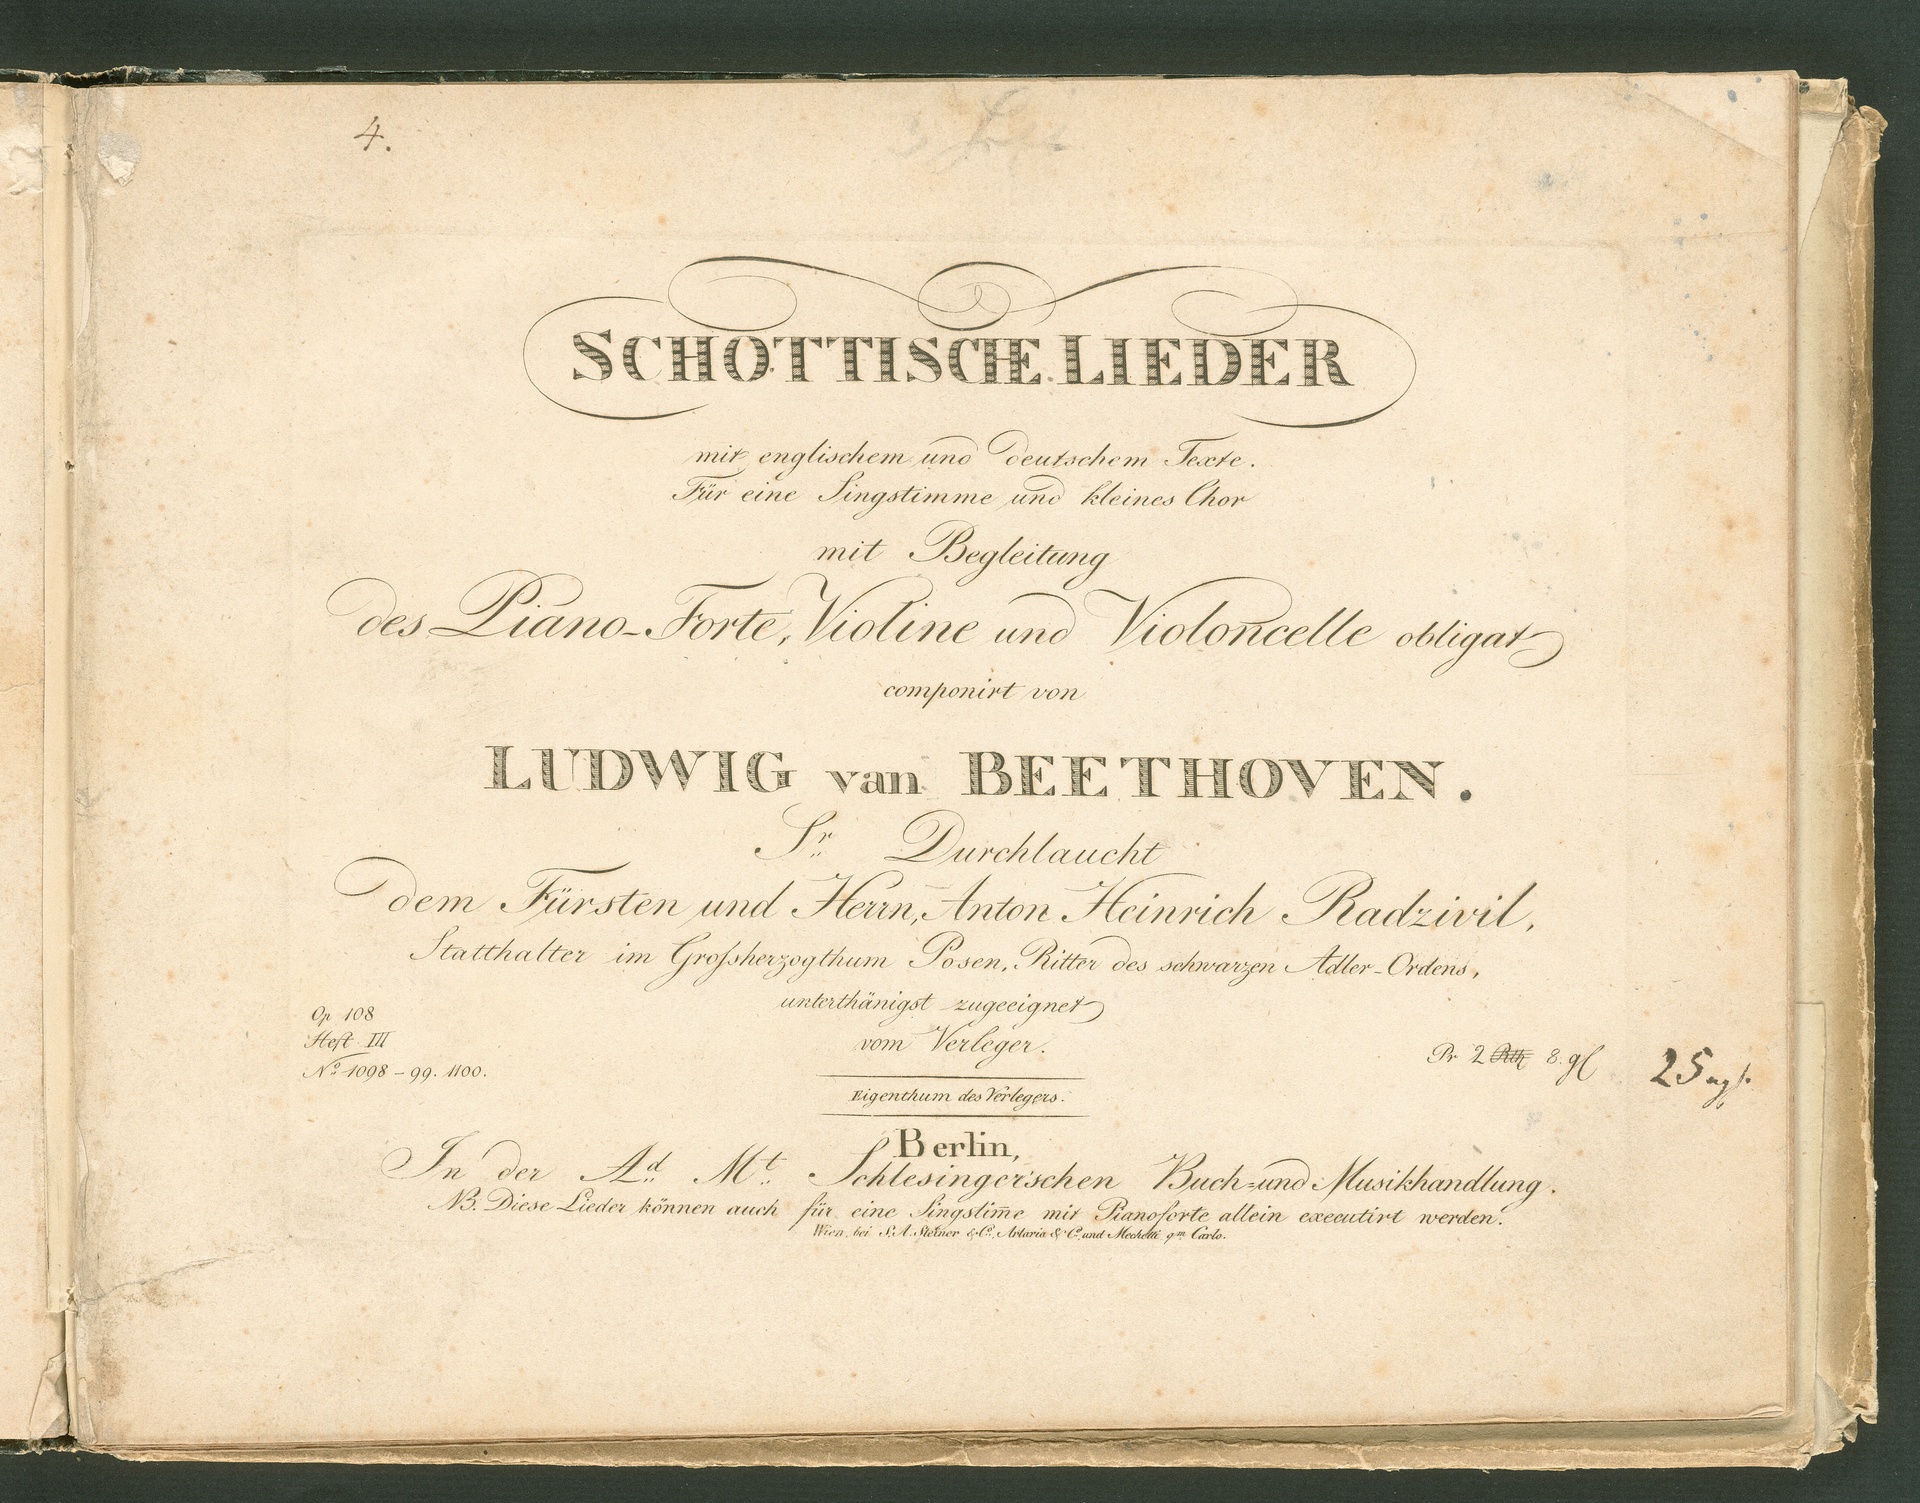 4.
SCHOTTISCHE LIEDER
mit englischem und deutschem Texte.
Für eine Singstimme und kleines Chor
mit Begleitung
des Piano-Forte, Violine und Violoncelle obligat
componirt von
LUDWIG van BEETHOVEN.
Sr. Durchlaucht
dem Fürsten und Herrn, Anton Heinrich Radzivil,
Statthalter im Grossherzogthum Posen, Ritter des schwarzen Adler-Ordens,
unterthänigst zugeeignet
vom Verleger.
Op 108
Heft III
No. 1098-99. 1100.
Pr 2 Rth 8 gl
25 ngr.
Eigenthum des Verlegers.
Berlin,
In der Ad. Mt. Schlesinger'schen Buch- und Musikhandlung.
NB. Diese Lieder können auch für eine Singstim̄e mit Pianoforte allein executirt werden.
Wien, bei S. A. Steiner & Co., Artaria & Co. und Mechetti qm Carlo.